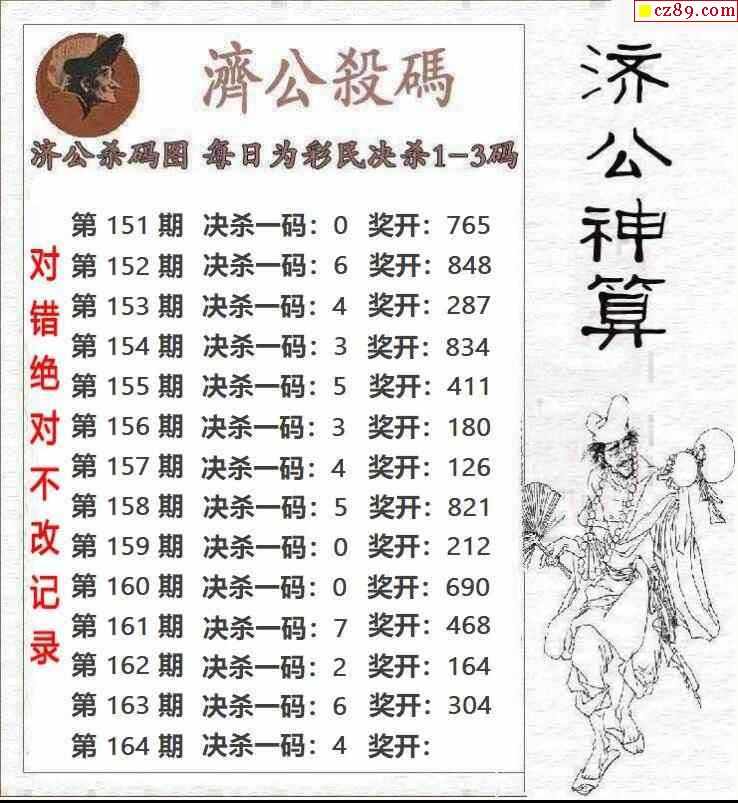 cz89.com
濟公殺碼
济公杀码图 每日为彩民决杀1-3码
第 151 期 决杀一码：0 奖开：765
第 152 期 决杀一码：6 奖开：848
第 153 期 决杀一码：4 奖开：287
第 154 期 决杀一码：3 奖开：834
第 155 期 决杀一码：5 奖开：411
第 156 期 决杀一码：3 奖开：180
第 157 期 决杀一码：4 奖开：126
第 158 期 决杀一码：5 奖开：821
第 159 期 决杀一码：0 奖开：212
第 160 期 决杀一码：0 奖开：690
第 161 期 决杀一码：7 奖开：468
第 162 期 决杀一码：2 奖开：164
第 163 期 决杀一码：6 奖开：304
第 164 期 决杀一码：4 奖开：
对错绝对不改记录
济公神算